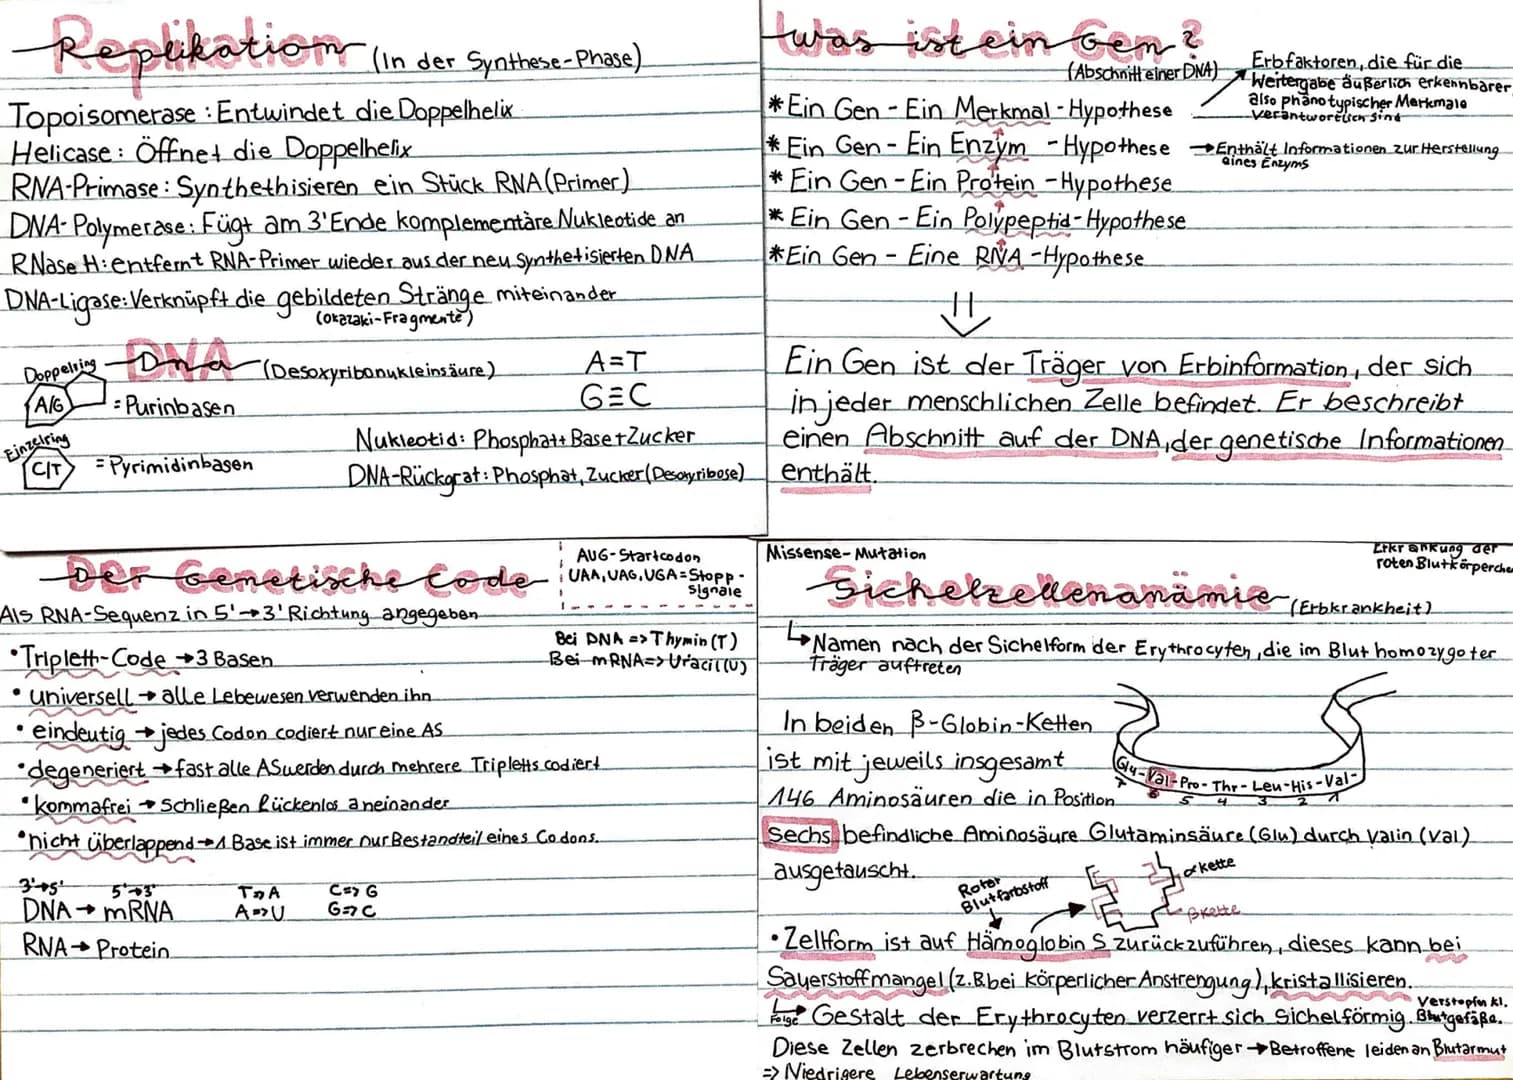 Replikation (In der Synthese-Phase)
Topoisomerase : Entwindet die Doppelhelix
Helicase : Öffnet die Doppelhelix
RNA-Primase : Synthethisieren ein Stück RNA (Primer)
DNA-Polymerase : Fügt am 3'Ende komplementäre Nukleotide an
RNase H : entfernt RNA-Primer wieder aus der neu synthetisierten DNA
DNA-Ligase : Verknüpft die gebildeten Stränge miteinander
(Okazaki-Fragmente)
DNA (Desoxyribonukleinsäure)
Doppelring
A/G = Purinbasen
Einzelring
C/T = Pyrimidinbasen
A=T
G≡C
Nukleotid: Phosphat + Base + Zucker
DNA-Rückgrat: Phosphat, Zucker (Desoxyribose)
Was ist ein Gen?
(Abschnitt einer DNA)
Erbfaktoren, die für die
Weitergabe äußerlich erkennbarer,
also phänotypischer Merkmale
verantwortlich sind
* Ein Gen - Ein Merkmal - Hypothese
* Ein Gen - Ein Enzym - Hypothese → Enthält Informationen zur Herstellung
eines Enzyms
* Ein Gen - Ein Protein - Hypothese
* Ein Gen - Ein Polypeptid - Hypothese
* Ein Gen - Eine RNA - Hypothese
⇓
Ein Gen ist der Träger von Erbinformation, der sich
in jeder menschlichen Zelle befindet. Er beschreibt
einen Abschnitt auf der DNA, der genetische Informationen
enthält.
Der Genetische Code
AUG-Startcodon
UAA, UAG, UGA = Stopp-
signale
Als RNA-Sequenz in 5'→3' Richtung angegeben
Bei DNA => Thymin (T)
Bei mRNA => Uracil (U)
• Triplett-Code → 3 Basen
• universell → alle Lebewesen verwenden ihn
• eindeutig → jedes Codon codiert nur eine AS
• degeneriert → fast alle AS werden durch mehrere Tripletts codiert
• kommafrei → Schließen lückenlos aneinander
• nicht überlappend → 1 Base ist immer nur Bestandteil eines Codons.
3'→5' 5'→3'
DNA → mRNA
T=>A C=>G
A=>U G=>C
RNA → Protein
Missense-Mutation
Erkrankung der
roten Blutkörperche
Sichelzellenanämie (Erbkrankheit)
↳ Namen nach der Sichelform der Erythrocyten, die im Blut homozygoter
Träger auftreten
In beiden β-Globin-Ketten
ist mit jeweils insgesamt
146 Aminosäuren die in Position
sechs befindliche Aminosäure Glutaminsäure (Glu) durch Valin (Val)
ausgetauscht.
Glu-Val-Pro-Thr-Leu-His-Val-
7 6 5 4 3 2 1
Roter
Blutfarbstoff
α kette
β kette
• Zellform ist auf Hämoglobin S zurückzuführen, dieses kann bei
Sauerstoffmangel (z.B. bei körperlicher Anstrengung), kristallisieren.
↳ Folge Gestalt der Erythrocyten verzerrt sich sichelförmig.
Verstopfen kl.
Blutgefäße.
Diese Zellen zerbrechen im Blutstrom häufiger → Betroffene leiden an Blutarmut
=> Niedrigere Lebenserwartung